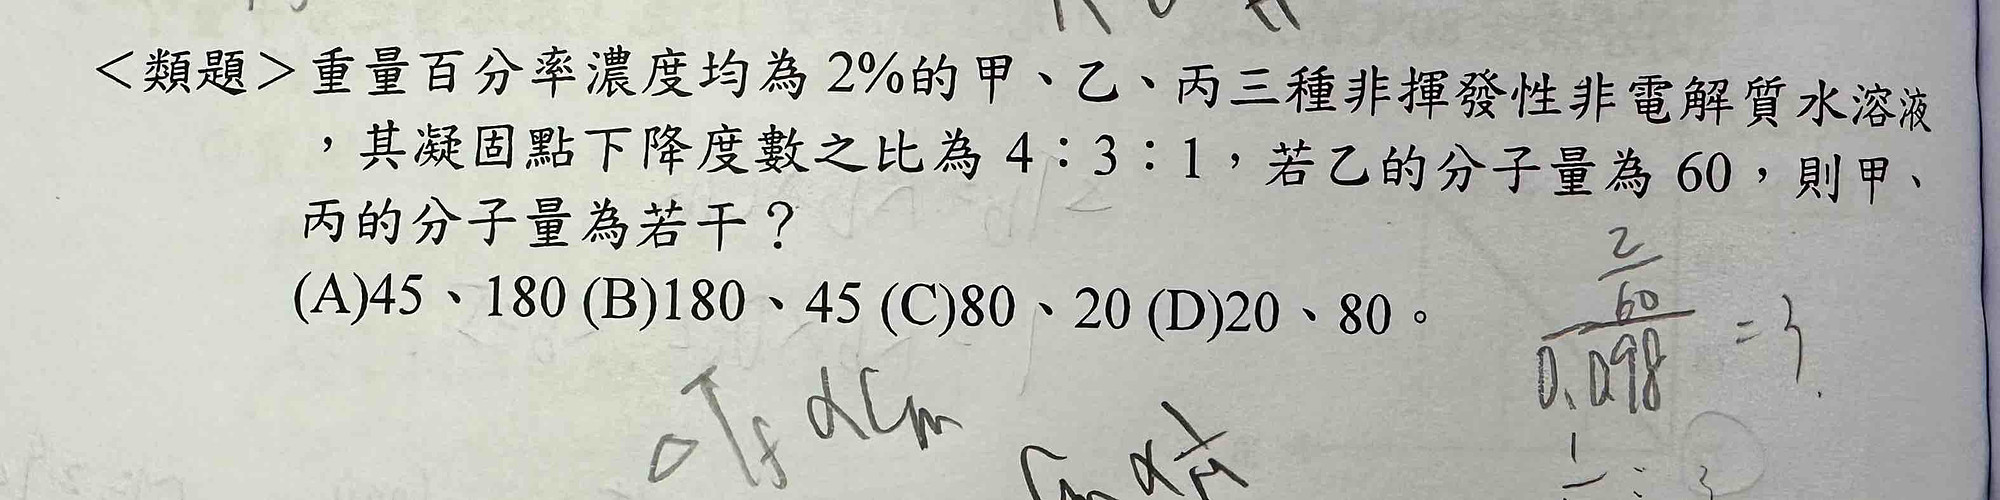 ＜類題＞重量百分率濃度均為 2%的甲、乙、丙三種非揮發性非電解質水溶液
，其凝固點下降度數之比為 4：3：1，若乙的分子量為 60，則甲、
丙的分子量為若干？
(A)45、180 (B)180、45 (C)80、20 (D)20、80。
2
60
0.098 = 3
ΔTf ∝ Cm
Cm ∝ 1/M